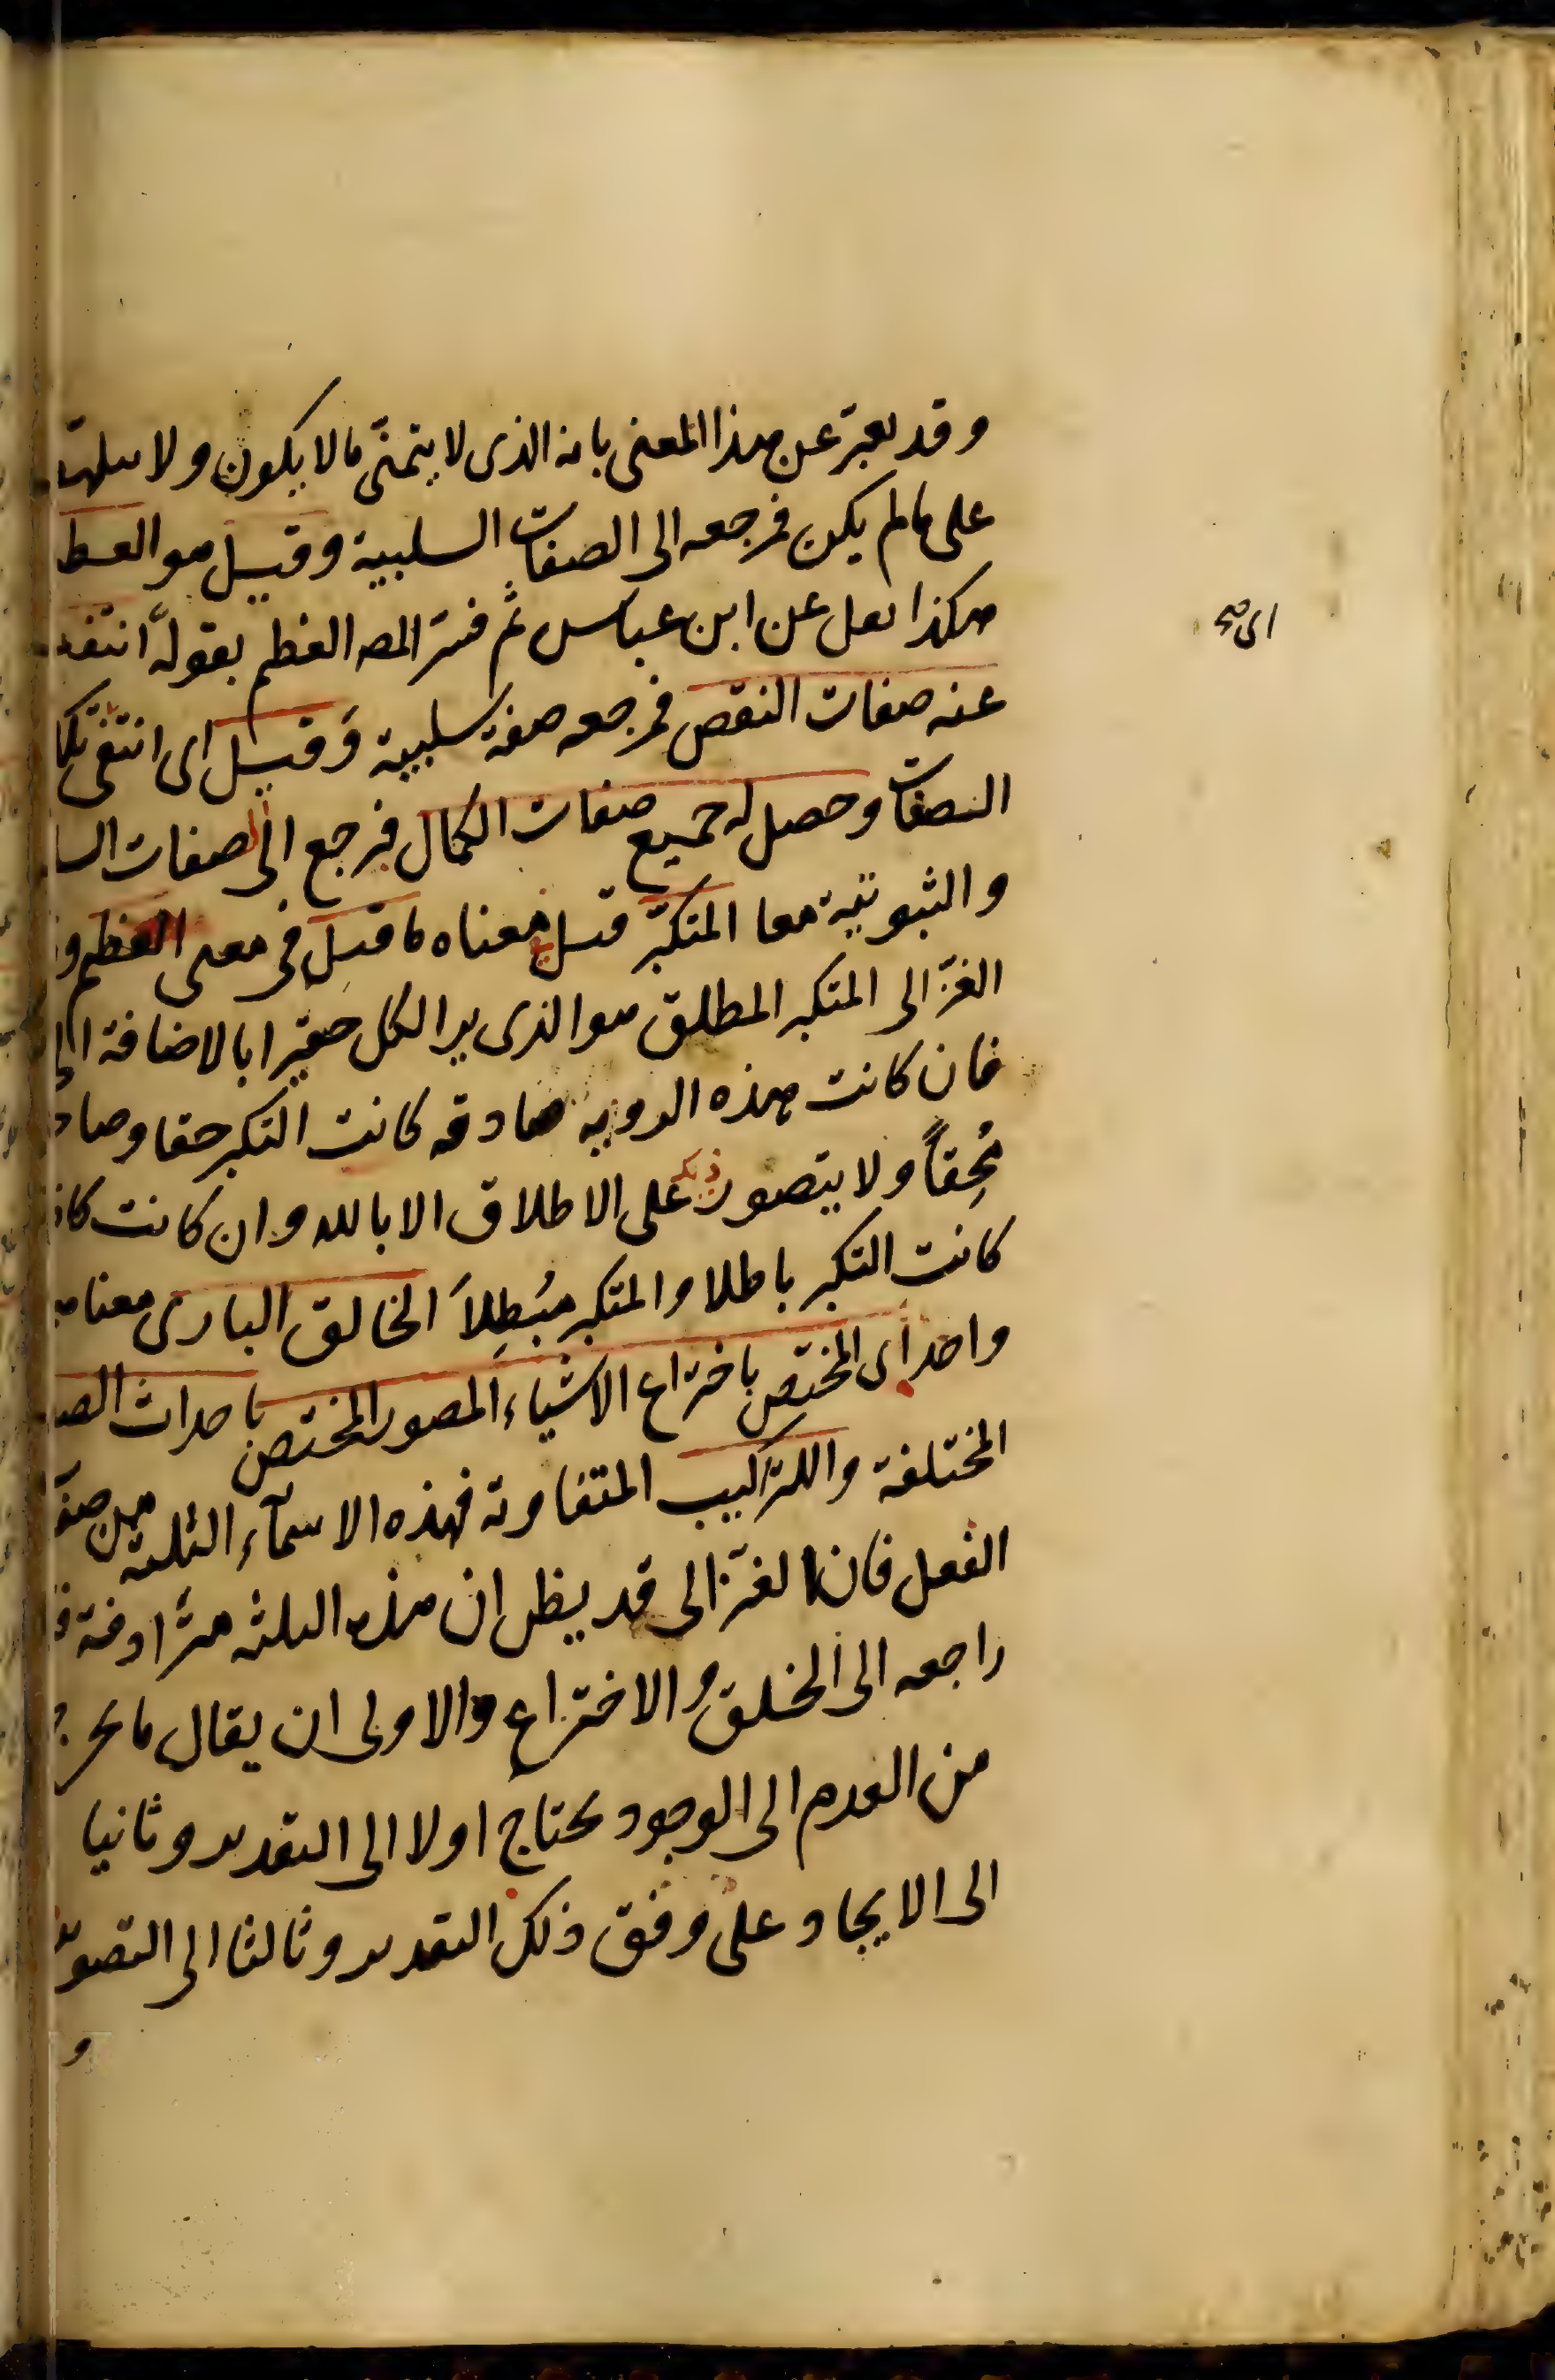 وقد يعبر عن هذا المعنى بانه الذى لا يتمنّى ما لا يكون ولا يتلهّف
على ما لم يكن فمرجعه الى الصفات السلبية وقيل هو العظيم
هكذا نقل عن ابن عباس ثم فسّر المص العظيم بقوله انتفت
اى صح
عنه صفات النقص فمرجعه صفة سلبية وقيل اى انتفى تلك
الصفات وحصل له جميع صفات الكمال فيرجع الى الصفات السلبية
والثبوتية معا المتكبّر قيل فى معناه ما قيل فى معنى العظيم و
الغزّالى المتكبر المطلق هو الذى يرا الكل حقيرا بالاضافة الى
فان كانت هذه الروية صادقه كانت التكبر حقا وصاحبه
مُحِقاً ولا يتصور ذلك على الاطلاق الا بالله وان كانت كاذبة
كانت التكبر باطلا والمتكبر مُبْطِلاً الخالق البارى معناه
واحد اى المختص باختراع الاشياء المصور المختص باحداث الصور
المختلفة والتراكيب المتفاوتة فهذه الاسمآء الثلثة من صفة
الفعل قال الغزّالى قد يظن ان هذه الثلثه مترادفة
راجعه الى الخلق والاختراع والاولى ان يقال ما يخرج
من العدم الى الوجود يحتاج اولا الى التقدير وثانيا
الى الايجاد على وفق ذلك التقدير وثالثا الى التصوير
و